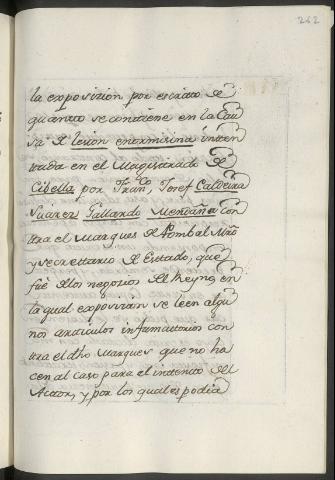 262
la exposizion por escrito de
quanto se contiene en la Cau
sa de lesion enormisima inten
tada en el Magistrado de
Cibella por Franco Josef Caldeira
Suarez Gallardo Mendaña con
tra el Marques de Pombal Mro
y secrettario de Estado, que
fuè de los negocios del Reyno, en
la qual exposizion se leen algu
nos articulos infamattorios con
tra el dho Marques que no ha
cen al caso para el intento del
Actor, y por los quales podia